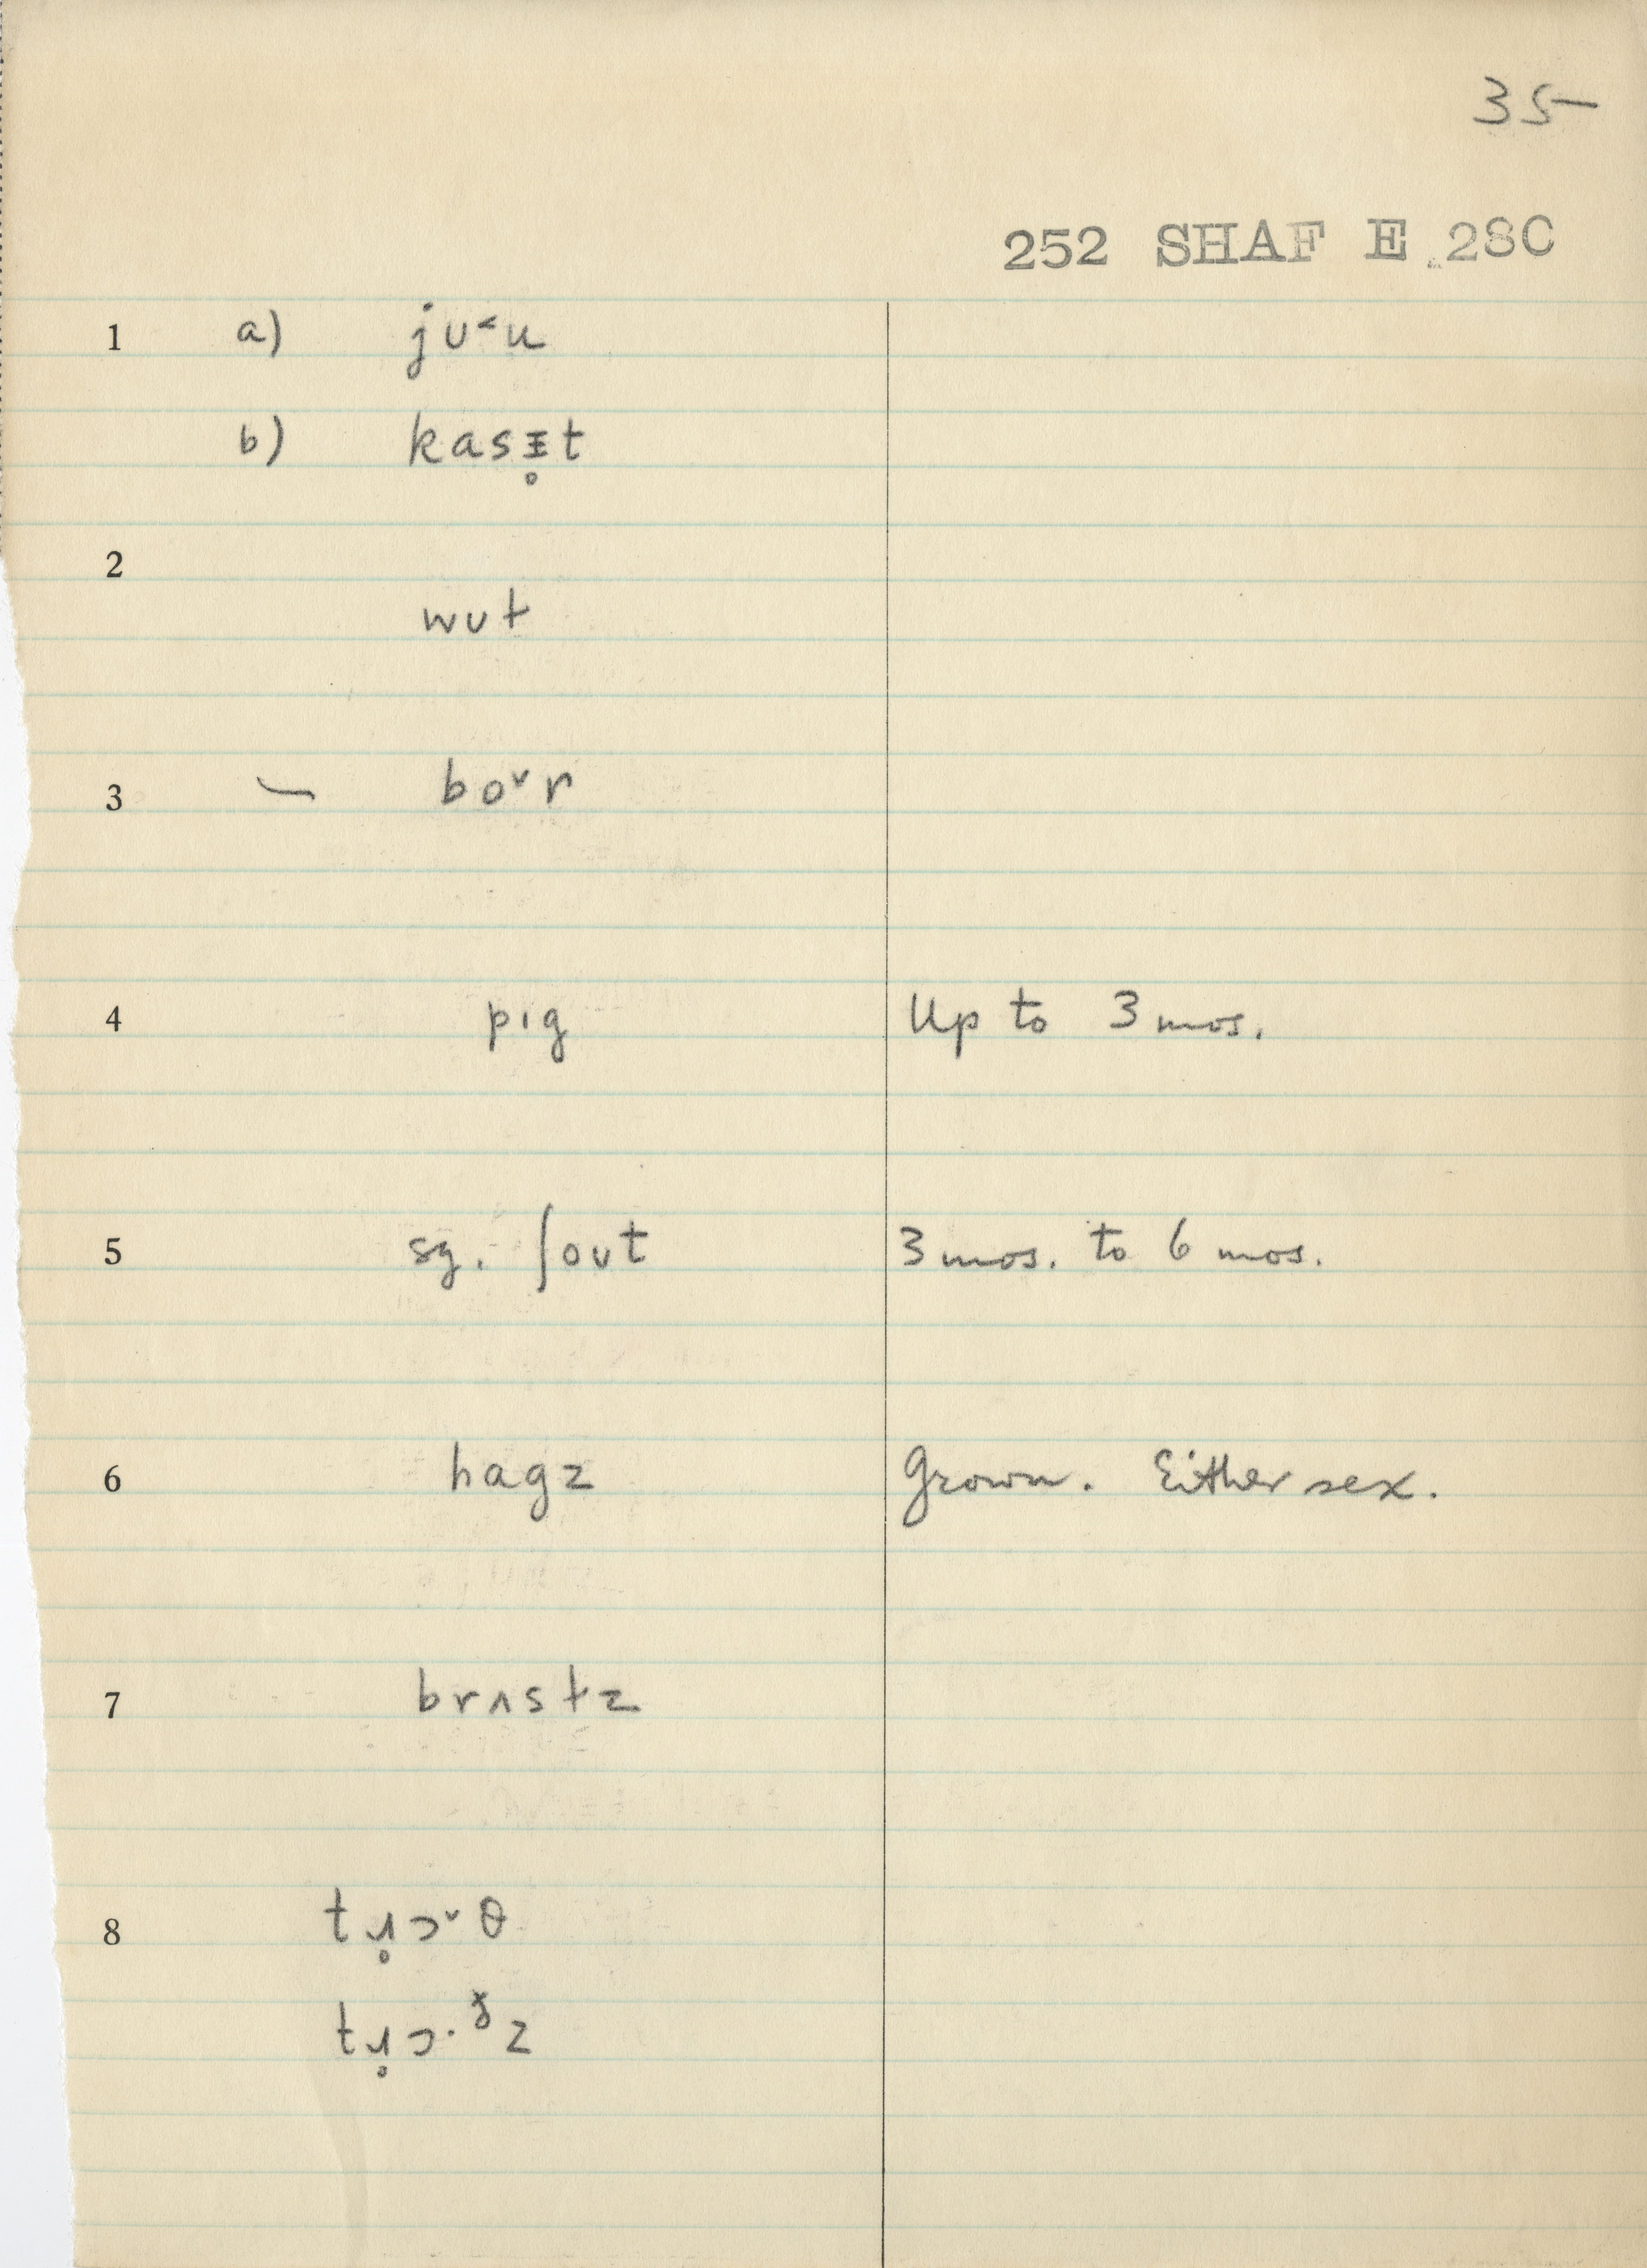 35
252 SHAF E 28C
1 a) jʊ˂u
b) kasᵻ̥t
2 wʊt
3 — bo˅r
4 pıg Up to 3 mos.
5 sg. ʃoʊt 3 mos. to 6 mos.
6 hagz Grown. Either sex.
7 brʌstz
8 tɹ̥ɔ˅θ
tɹ̥ɔ·ᵟz